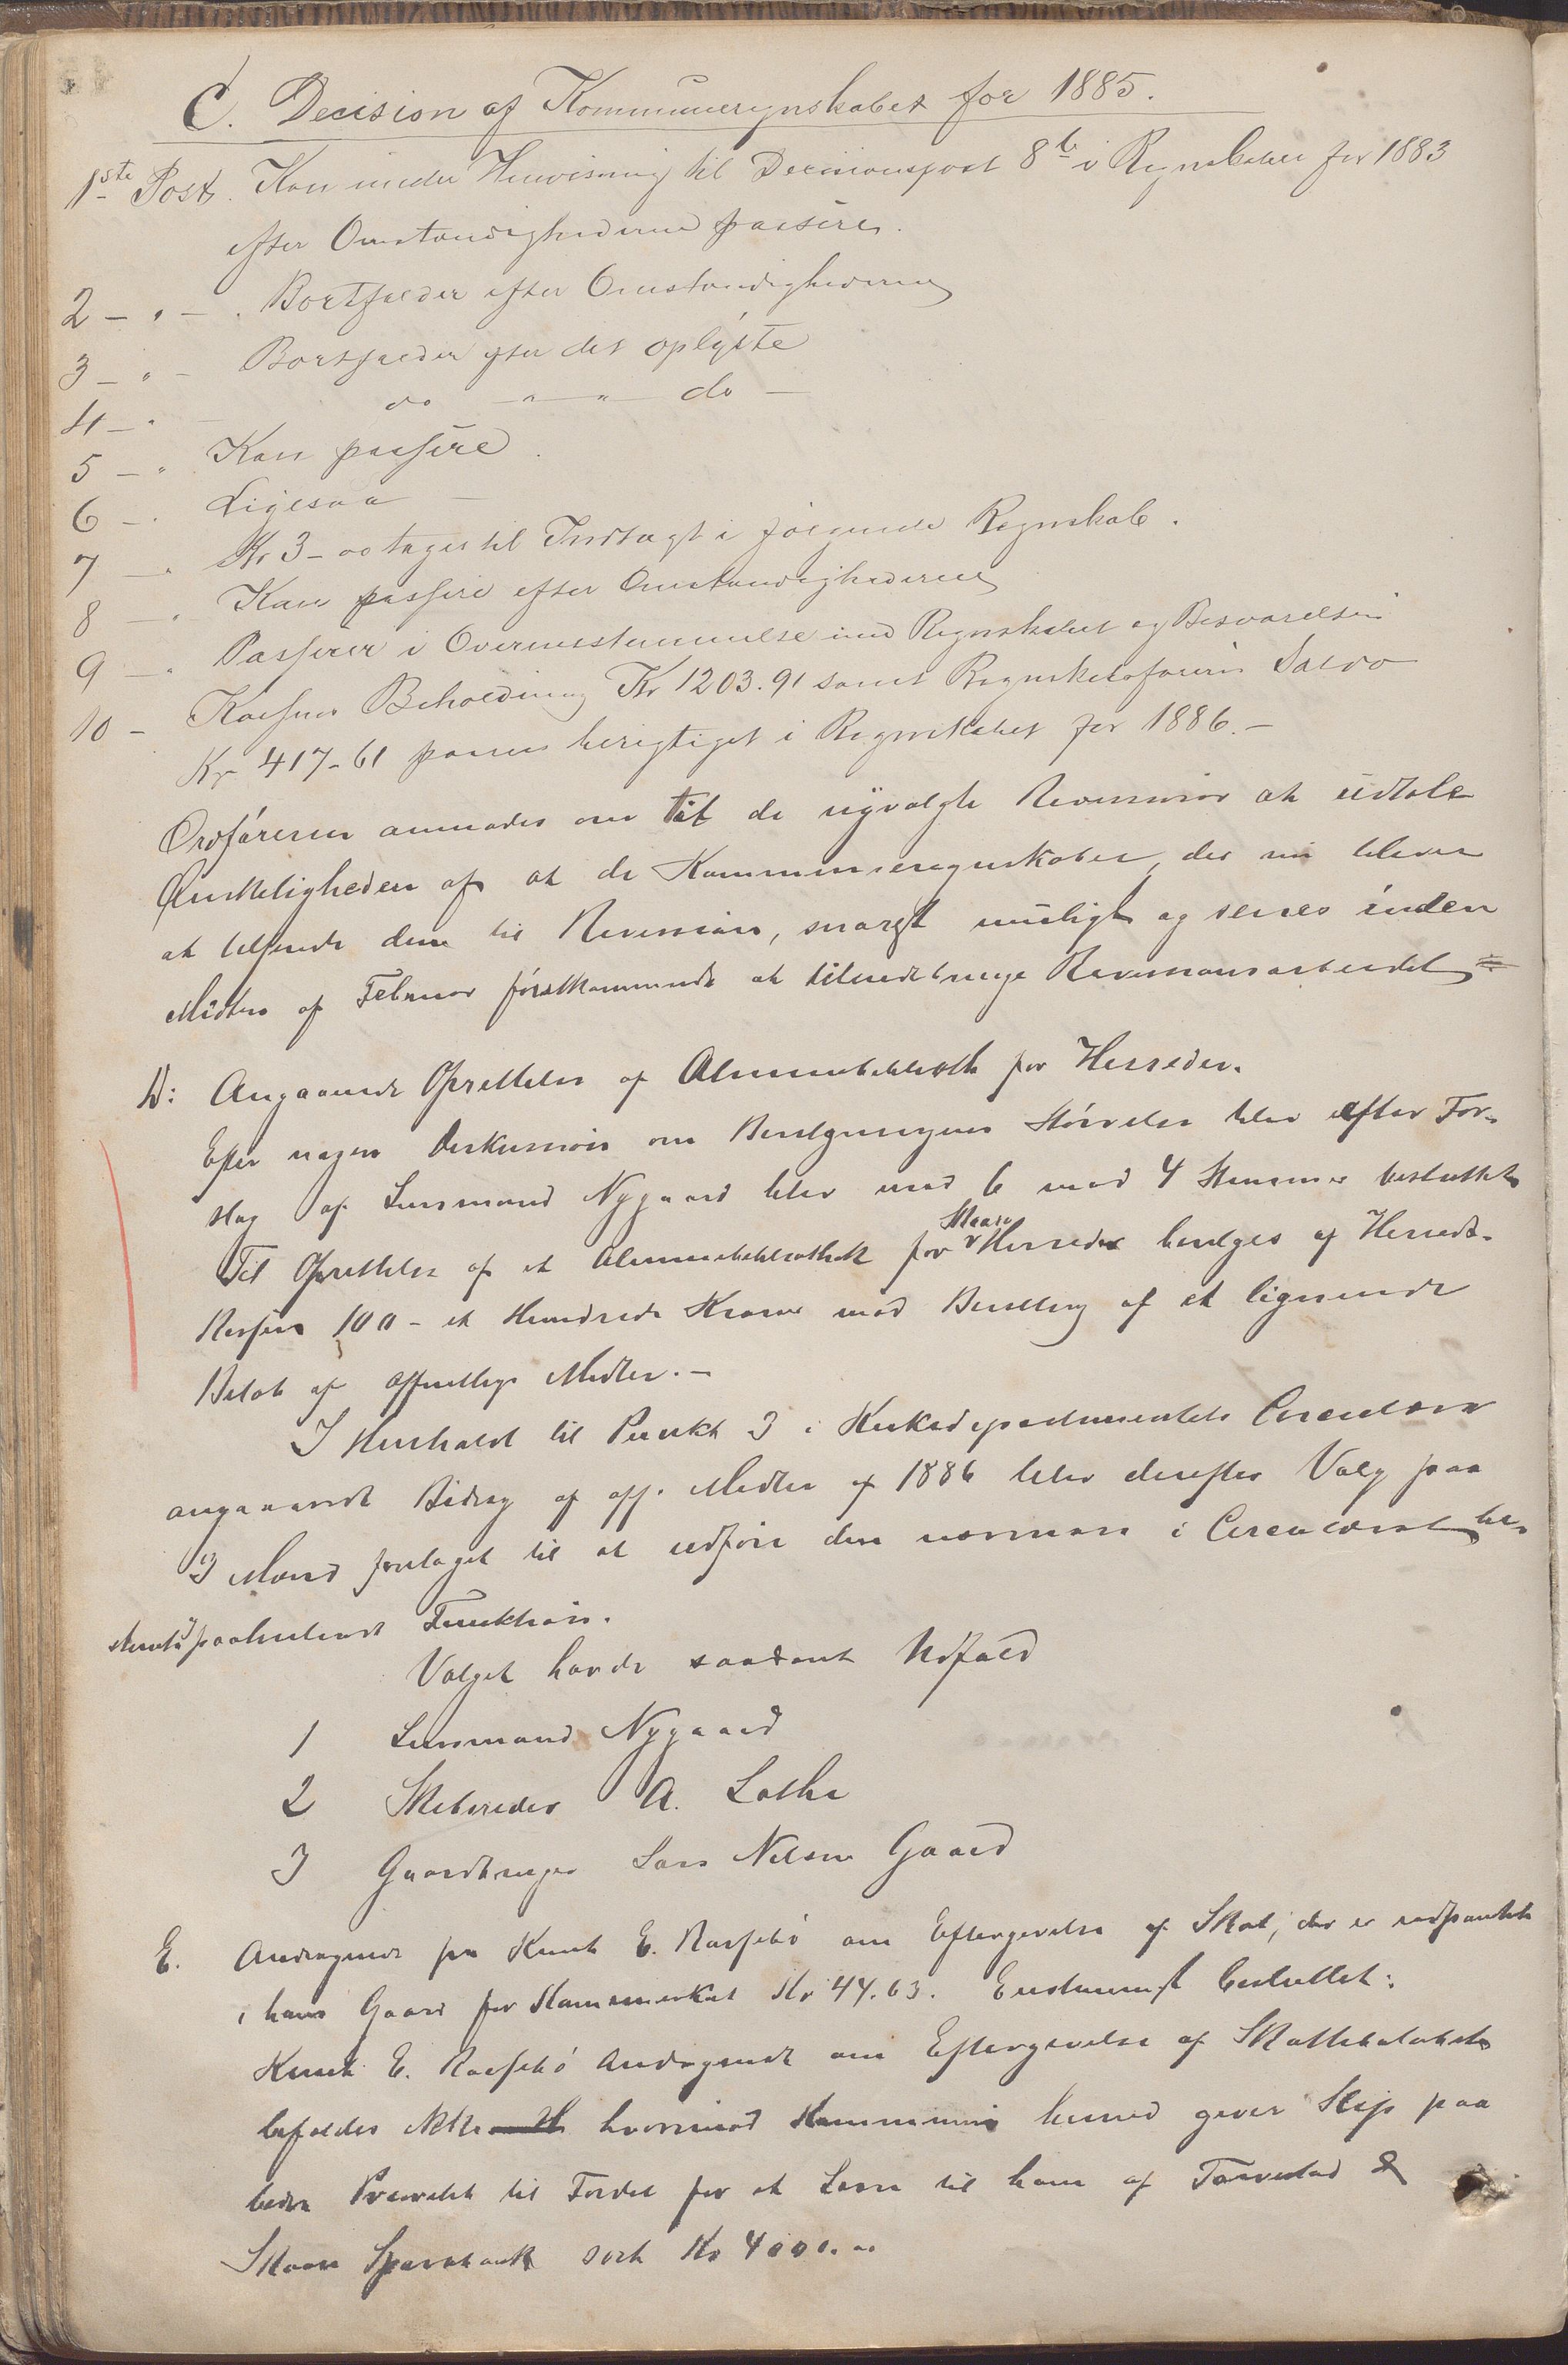 C. Decision af Kommuneregnskabet for 1885.
1ste Post. Kan under Henvisning til Decisionspost 8de i Regnskabet for 1883
efter Omstændighederne passere.
2 - " - . Bortfalder efter Omstændighederne
3 - " - Bortfalder efter det oplyste
4 - " do - " - " do -
5 - " Kan passere.
6 - " Ligesaa -
7 - " Kr 3-00 tages til Indtægt i følgende Regnskab.
8 - " Kan passere efter Omstændighederne
9 - " Passerer i Overensstemmelse med Regnskabet og Besvarelsen
10 - Kassens Beholdning Kr 1203.91 samt Regnskabsførerens Saldo
Kr 417-61 sees berigtiget i Regnskabet for 1886.-
Ordføreren anmodes om til de nyvalgte Revisorer at udtale
Ønskeligheden af at de Kommuneregnskaber, der nu bliver
at tilsende dem til Revision, snarest muligt og senest inden
Midten af Februar førstkommende at tilendebringe Revisionsarbeidet
D: Angaaende Oprettelse af Almuebibliothek for Herredet.
Efter nogen Diskussion om Bevilgningens Størrelse blev efter For-
slag af Lensmand Nygaard blev med 6 mod 4 Stemmer besluttet
Til Oprettelse af et Almuebibliothek for Skaare Herred bevilges af Herreds-
kassen 100 - et Hundrede Kroner mod Bevilling af et lignende
Beløb af offentlige Midler.-
I Henhold til Punkt 3 i Kirkedepartementets Circulære
angaaende Bidrag af off. Midler af 1886 blev derefter Valg paa
3 Mænd foretaget til at udføre den nærmere i Circulæret be-
paahvilende Funktion.
Valget havde saadant Udfald
1 Lensmand Nygaard
2 Skibsreder A. Lothe
3 Gaardbruger Lars Nilsen Gaard
E. Andragende fra Knut E. Rossebø om Eftergivelse af Skat, der er udpantet
i hans Gaard for Kommunekas Kr 44.63. Enstemmigt besluttet:
Knut E. Rossebø Andragende om Eftergivelse af Skattebeløbet
bifaldes ikke hvorimod Kommunen herved giver Slip paa
bedre Prioritet til Fordel for et Laan til ham af Torvestad &
Skaare Sparebank stort Kr 4000.00